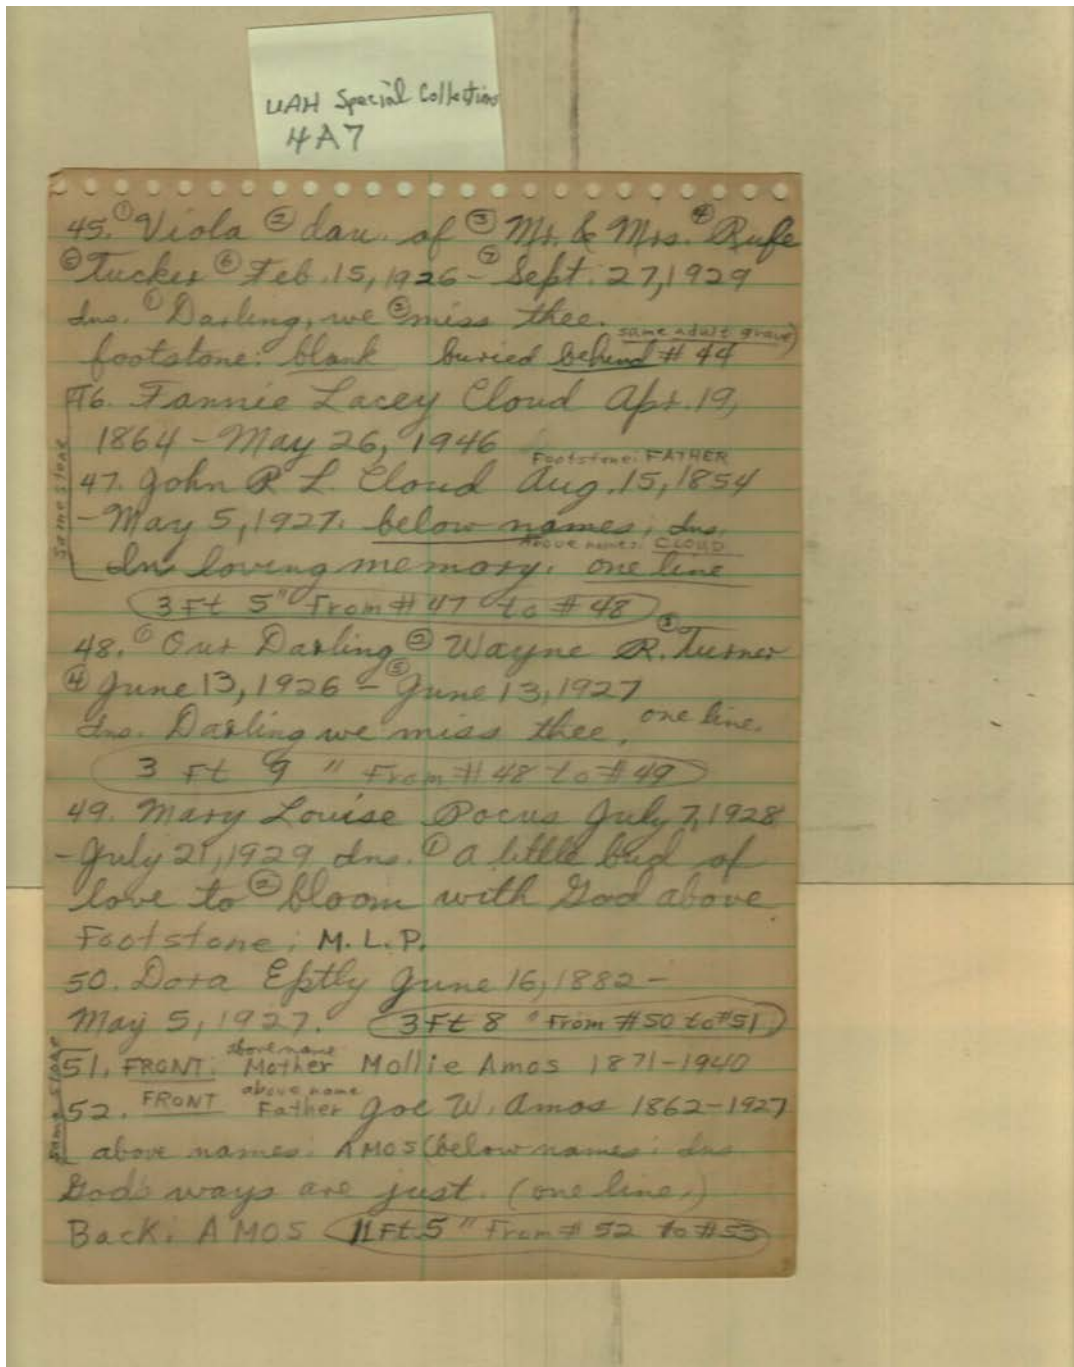 UAH Special Collections
4A7
45. ① Viola ② dau. of ③ Mr. & Mrs. ④ Rufe
⑤ Tucker ⑥ Feb. 15, 1926 - ⑦ Sept. 27, 1929
Ins. ① Darling, we ② miss thee.
same adult grave)
footstone: blank buried behind # 44
46. Fannie Lacey Cloud Apr. 19,
1864 - May 26, 1946
Footstone: FATHER
47. John R. L. Cloud Aug. 15, 1854
- May 5, 1927. below names: Ins.
above names: CLOUD
In loving memory. one line
same stone
3 Ft 5" From # 47 to # 48
48. ① Our Darling ② Wayne R. ③ Turner
④ June 13, 1926 - ⑤ June 13, 1927
Ins. Darling we miss thee. one line.
3 Ft 9 " From # 48 to # 49
49. Mary Louise Pocus July 7, 1928
- July 21, 1929 Ins. ① A little bud of
love to ② bloom with God above
Footstone: M. L. P.
50. Dora Eptly June 16, 1882 -
May 5, 1927. 3 Ft 8 " From # 50 to # 51
above name
51. FRONT: Mother Mollie Amos 1871-1940
above name
52. FRONT Father Joe W. Amos 1862-1927
same stone
above names: AMOS (below names: Ins
God's ways are just. (one line.)
Back: AMOS 11 Ft 5 " From # 52 to # 53